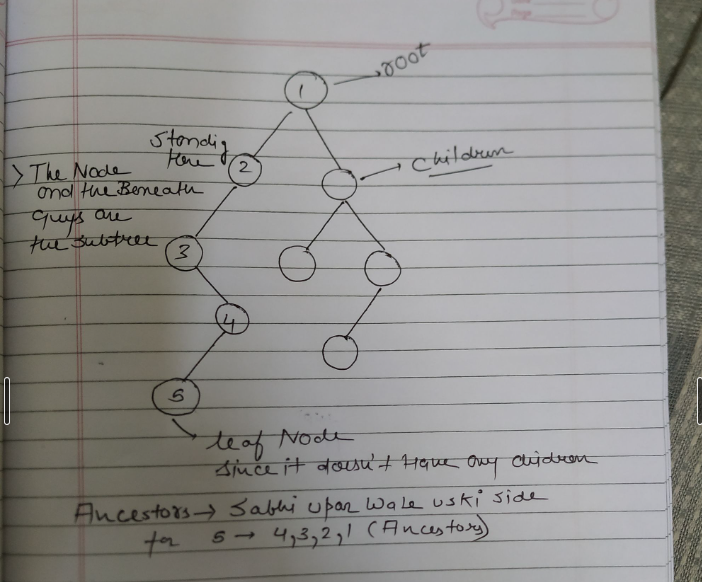 1
root
Standig
Here
2
Children
> The Node
and the Beneath
Guys are
the subtree
3
4
5
leaf Node
Since it doesn't Have any children
Ancestors → Sabhi upar Wale uski side
for 5 → 4,3,2,1 (Ancestors)